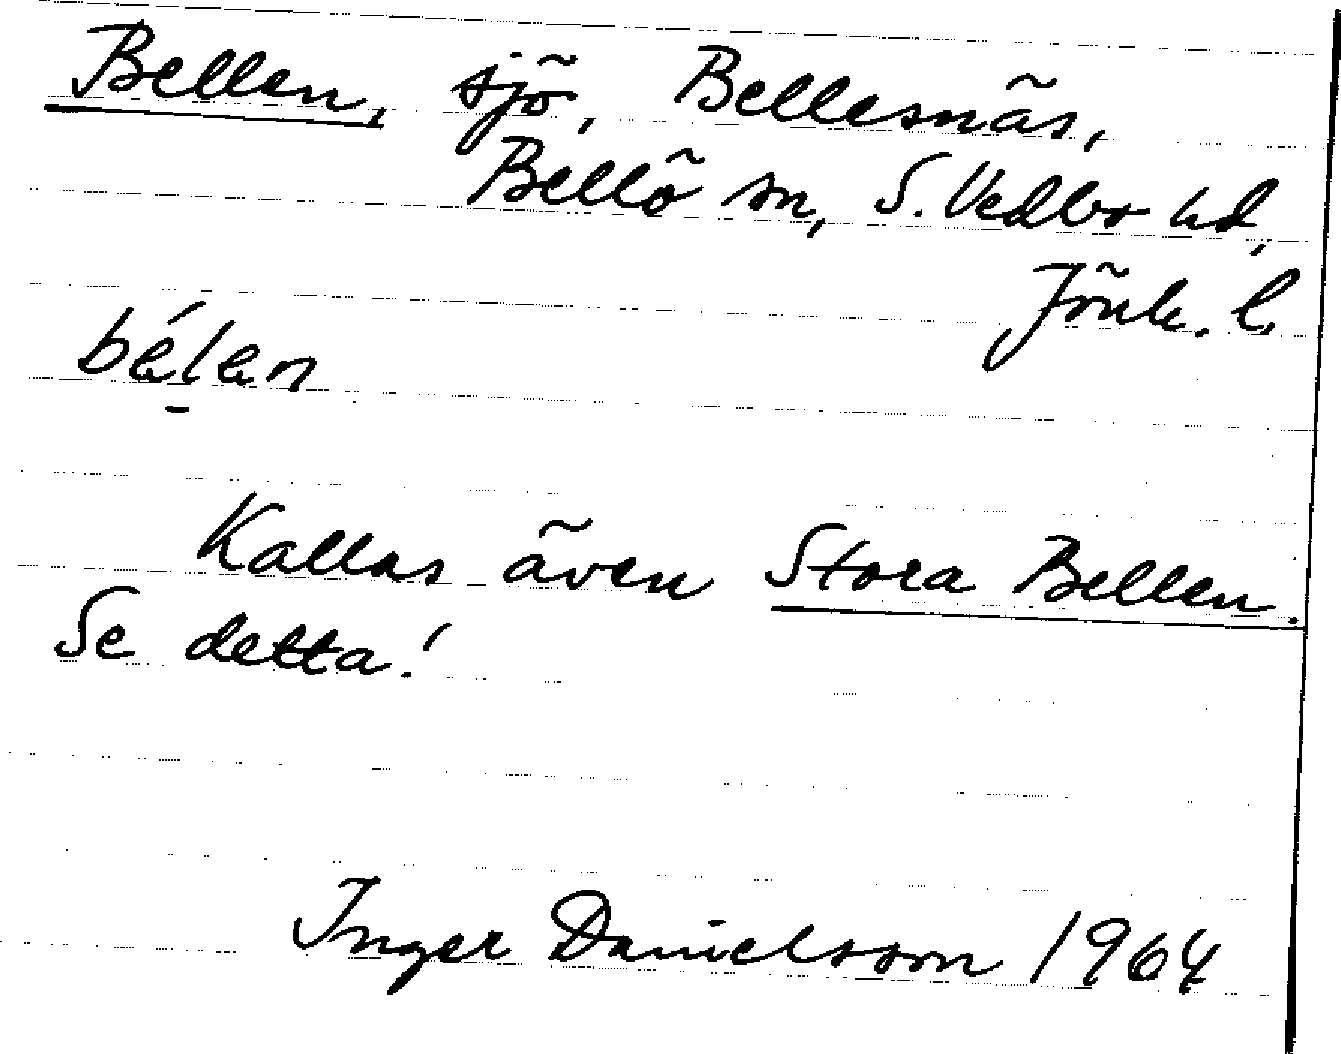 Bellen, sjö, Bellesnäs,
Bellö sn, S. Vedbo hd,
Jönk. l.
bé̠lan
Kallas även Stora Bellen.
Se detta!
Inger Danielsson 1964